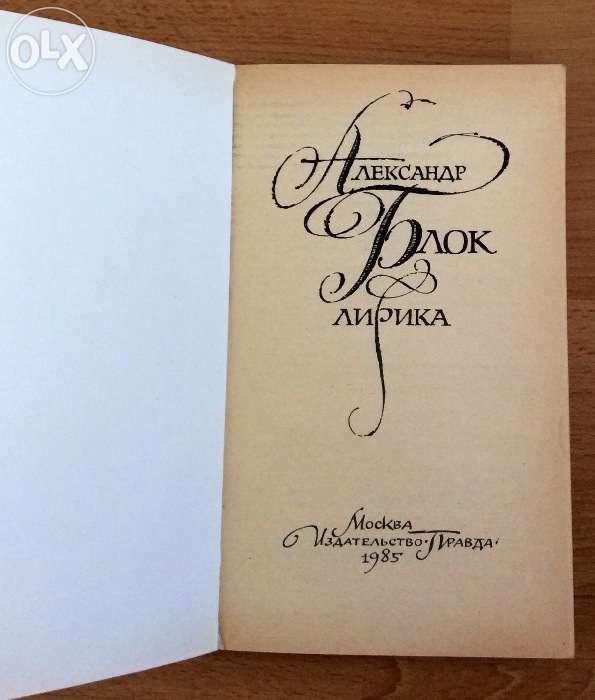 OLX
Александр
Блок
лирика
Москва
Издательство·Правда·
1985